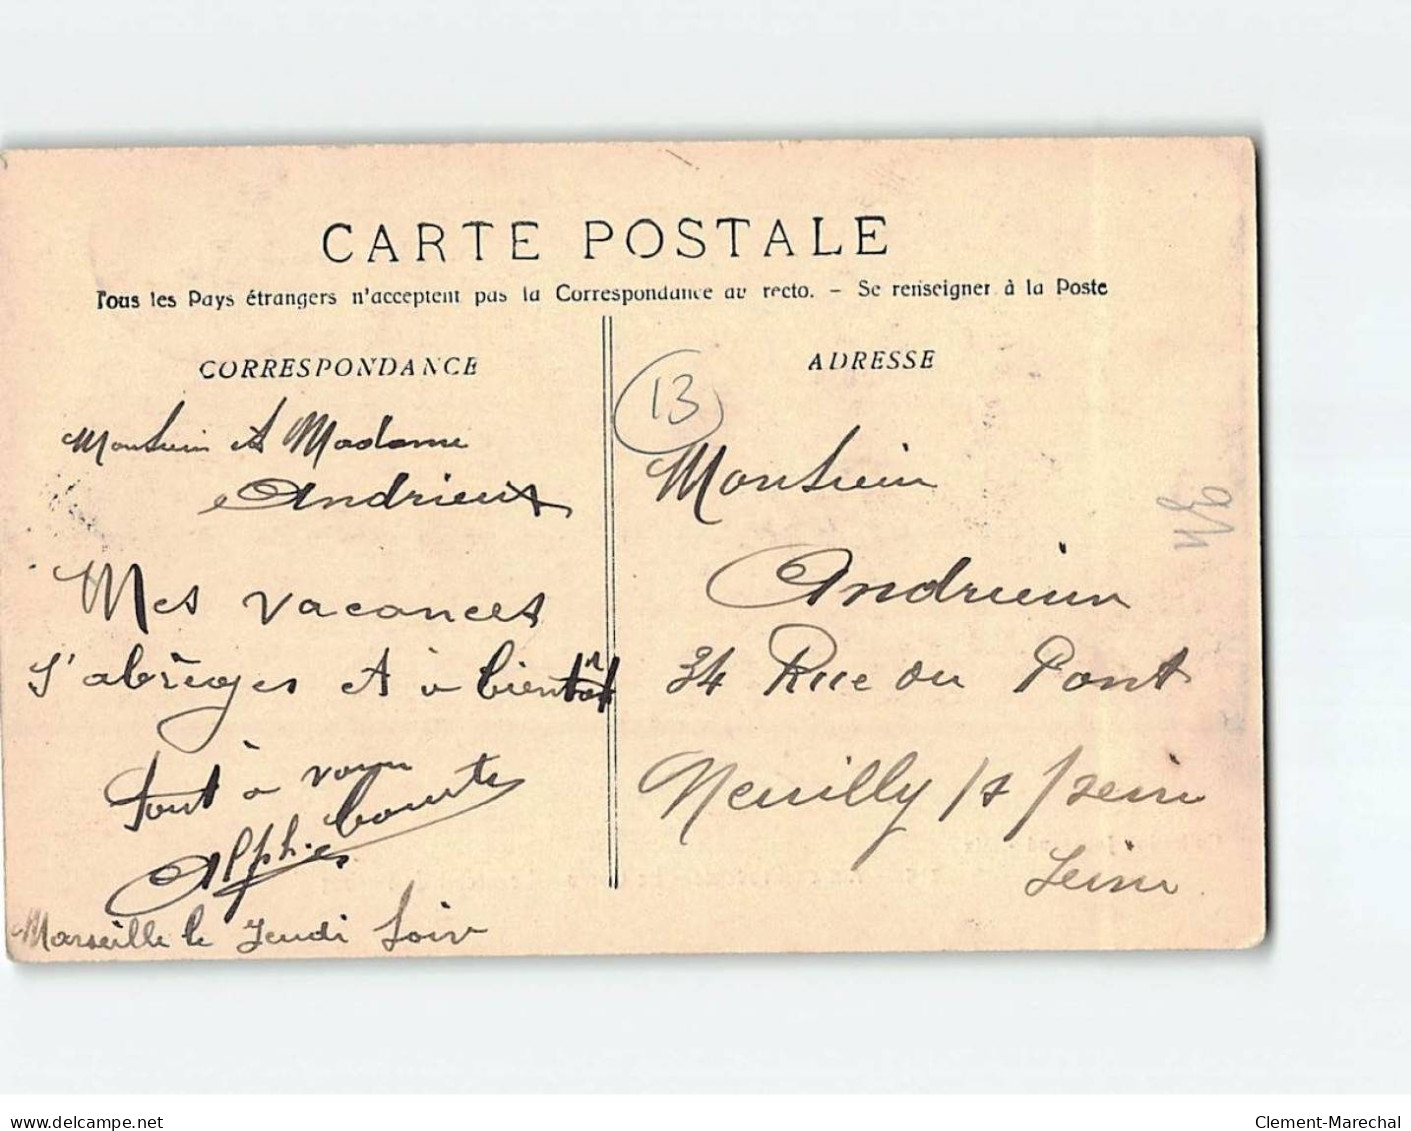 CARTE POSTALE
Tous les Pays étrangers n'acceptent pas la Correspondance au recto. - Se renseigner à la Poste
CORRESPONDANCE
Monsieur et Madame
Andrieux
Mes vacances
s'abrèges et à bientôt
Tout à vous
Alph.
Marseille le Jeudi soir
ADRESSE
13
Monsieur
Andrieux
34 Rue du Pont
Neuilly s/ Seine
Seine
delcampe.net
Clement-Marechal